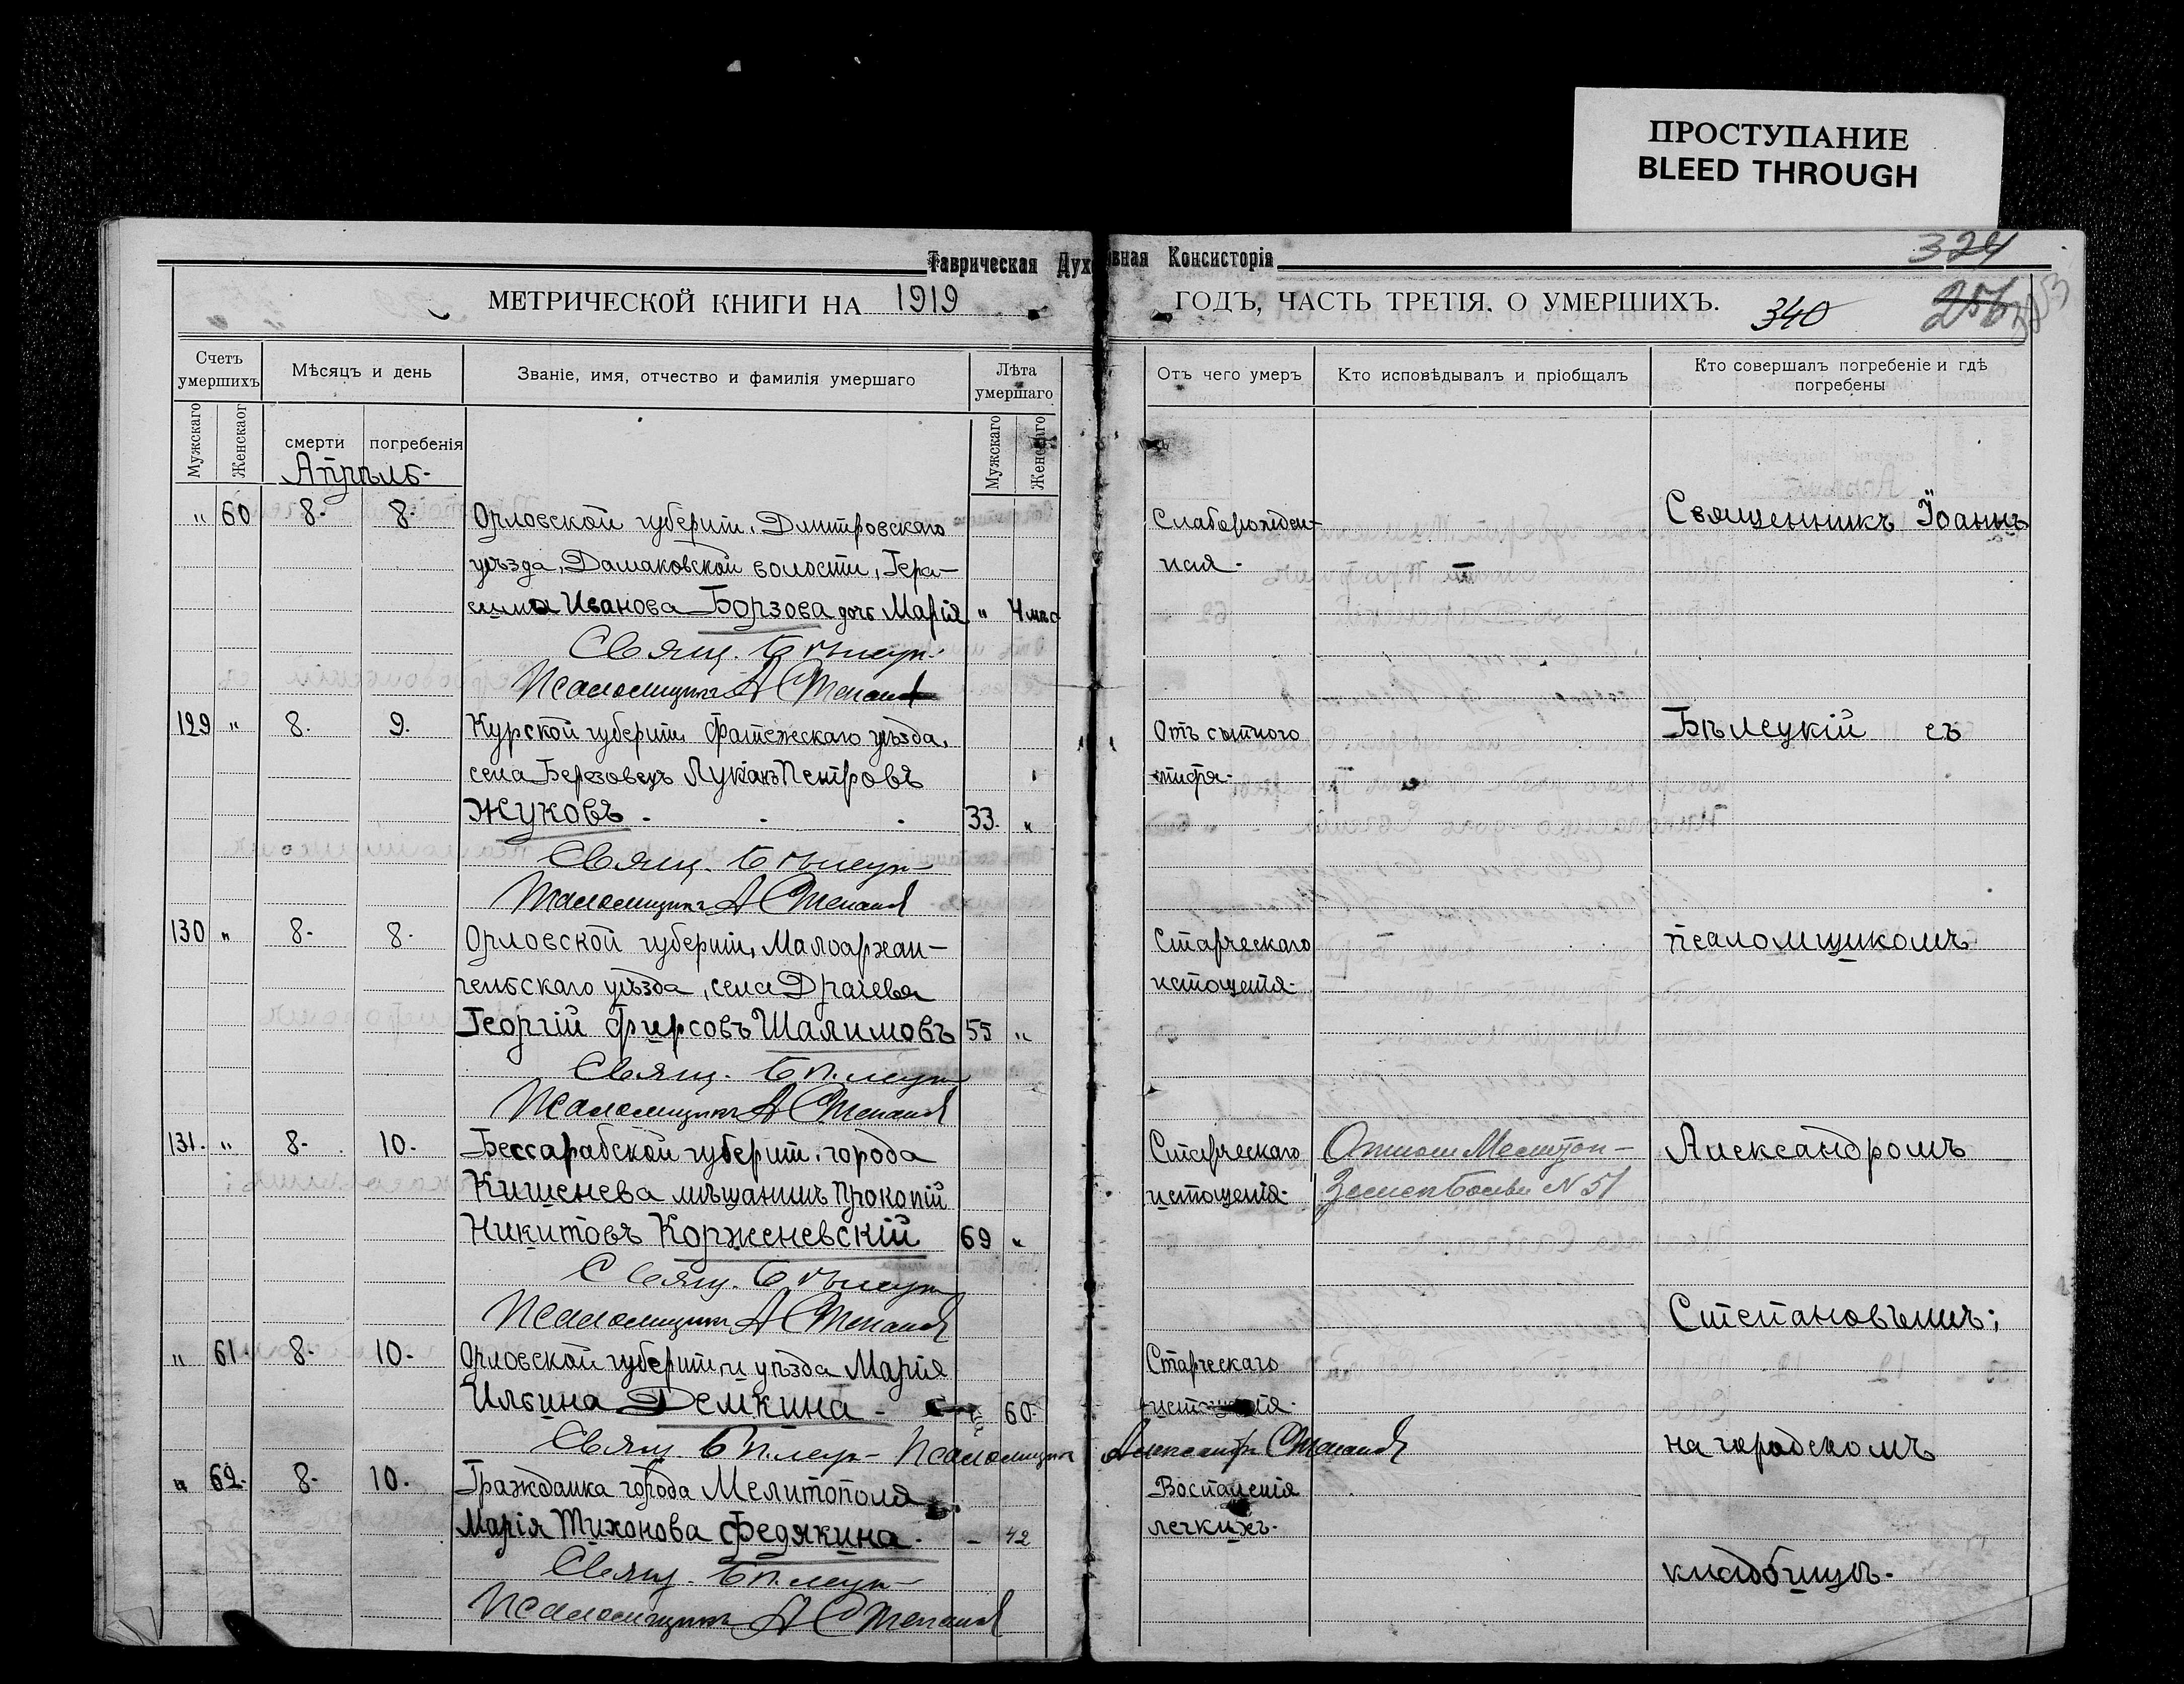 ПРОСТУПАНИЕ
BLEED THROUGH
324
Таврическая Духовная Консисторія
МЕТРИЧЕСКОЙ КНИГИ НА 1919 ГОДЪ, ЧАСТЬ ТРЕТІЯ. О УМЕРШИХЪ.
340
256
Счетъ умершихъ
Мѣсяцъ и день
Званіе, имя, отчество и фамилія умершаго
Лѣта умершаго
Отъ чего умеръ
Кто исповѣдывалъ и пріобщалъ
Кто совершалъ погребеніе и гдѣ погребены
Мужскаго
Женскаог
смерти
погребенія
Мужскаго
Женскаго
Апрѣль-
" 60 8- 8- Орловской губерніи, Дмитровскаго
уѣзда, Домаховской волости, Гера-
сима Иванова Борзова дочь Марія " 4 мѣс
Слаборожден-
ная-
Священникъ Іоаннъ
Свящ. Бѣлецк
Псаломщикъ А Степанов
129 " 8. 9. Курской губерніи Фатежскаго уѣзда,
села Березовецъ Лукіанъ Петровъ
Жуковъ - 33. "
Отъ сыпного
тифа-
Бѣлецкій съ
Свящ. Бѣлецк
Псаломщикъ А Степанов
130 " 8- 8- Орловской губерніи, Малоархан-
гельскаго уѣзда, села Драгевья
Георгій Фирсовъ Шалимовъ 55 "
Старческаго
истощенія-
псаломщикомъ
Свящ. Бѣлецк
Псаломщикъ А Степанов
131. " 8- 10. Бессарабской губерніи, города
Кишенева мѣщанинъ Прокопій
Никитовъ Корженевскій 69 "
Старческаго
истощенія-
№ 51
Александромъ
Свящ. Бѣлецк
Псаломщикъ А Степанов
Степановымъ;
" 61 8- 10- Орловской губерніи, и уѣзда Марія
Ильина Демкина - 60-
Старческаго
истощенія-
Свящ. Бѣлецк Псаломщикъ Александръ Степанов
на городскомъ
" 62- 8- 10. Гражданка города Мелитополя
Марія Тихонова Федякина. - 42
Воспаленія
легкихъ-
Свящ. Бѣлецк
Псаломщикъ А Степанов
кладбищѣ-